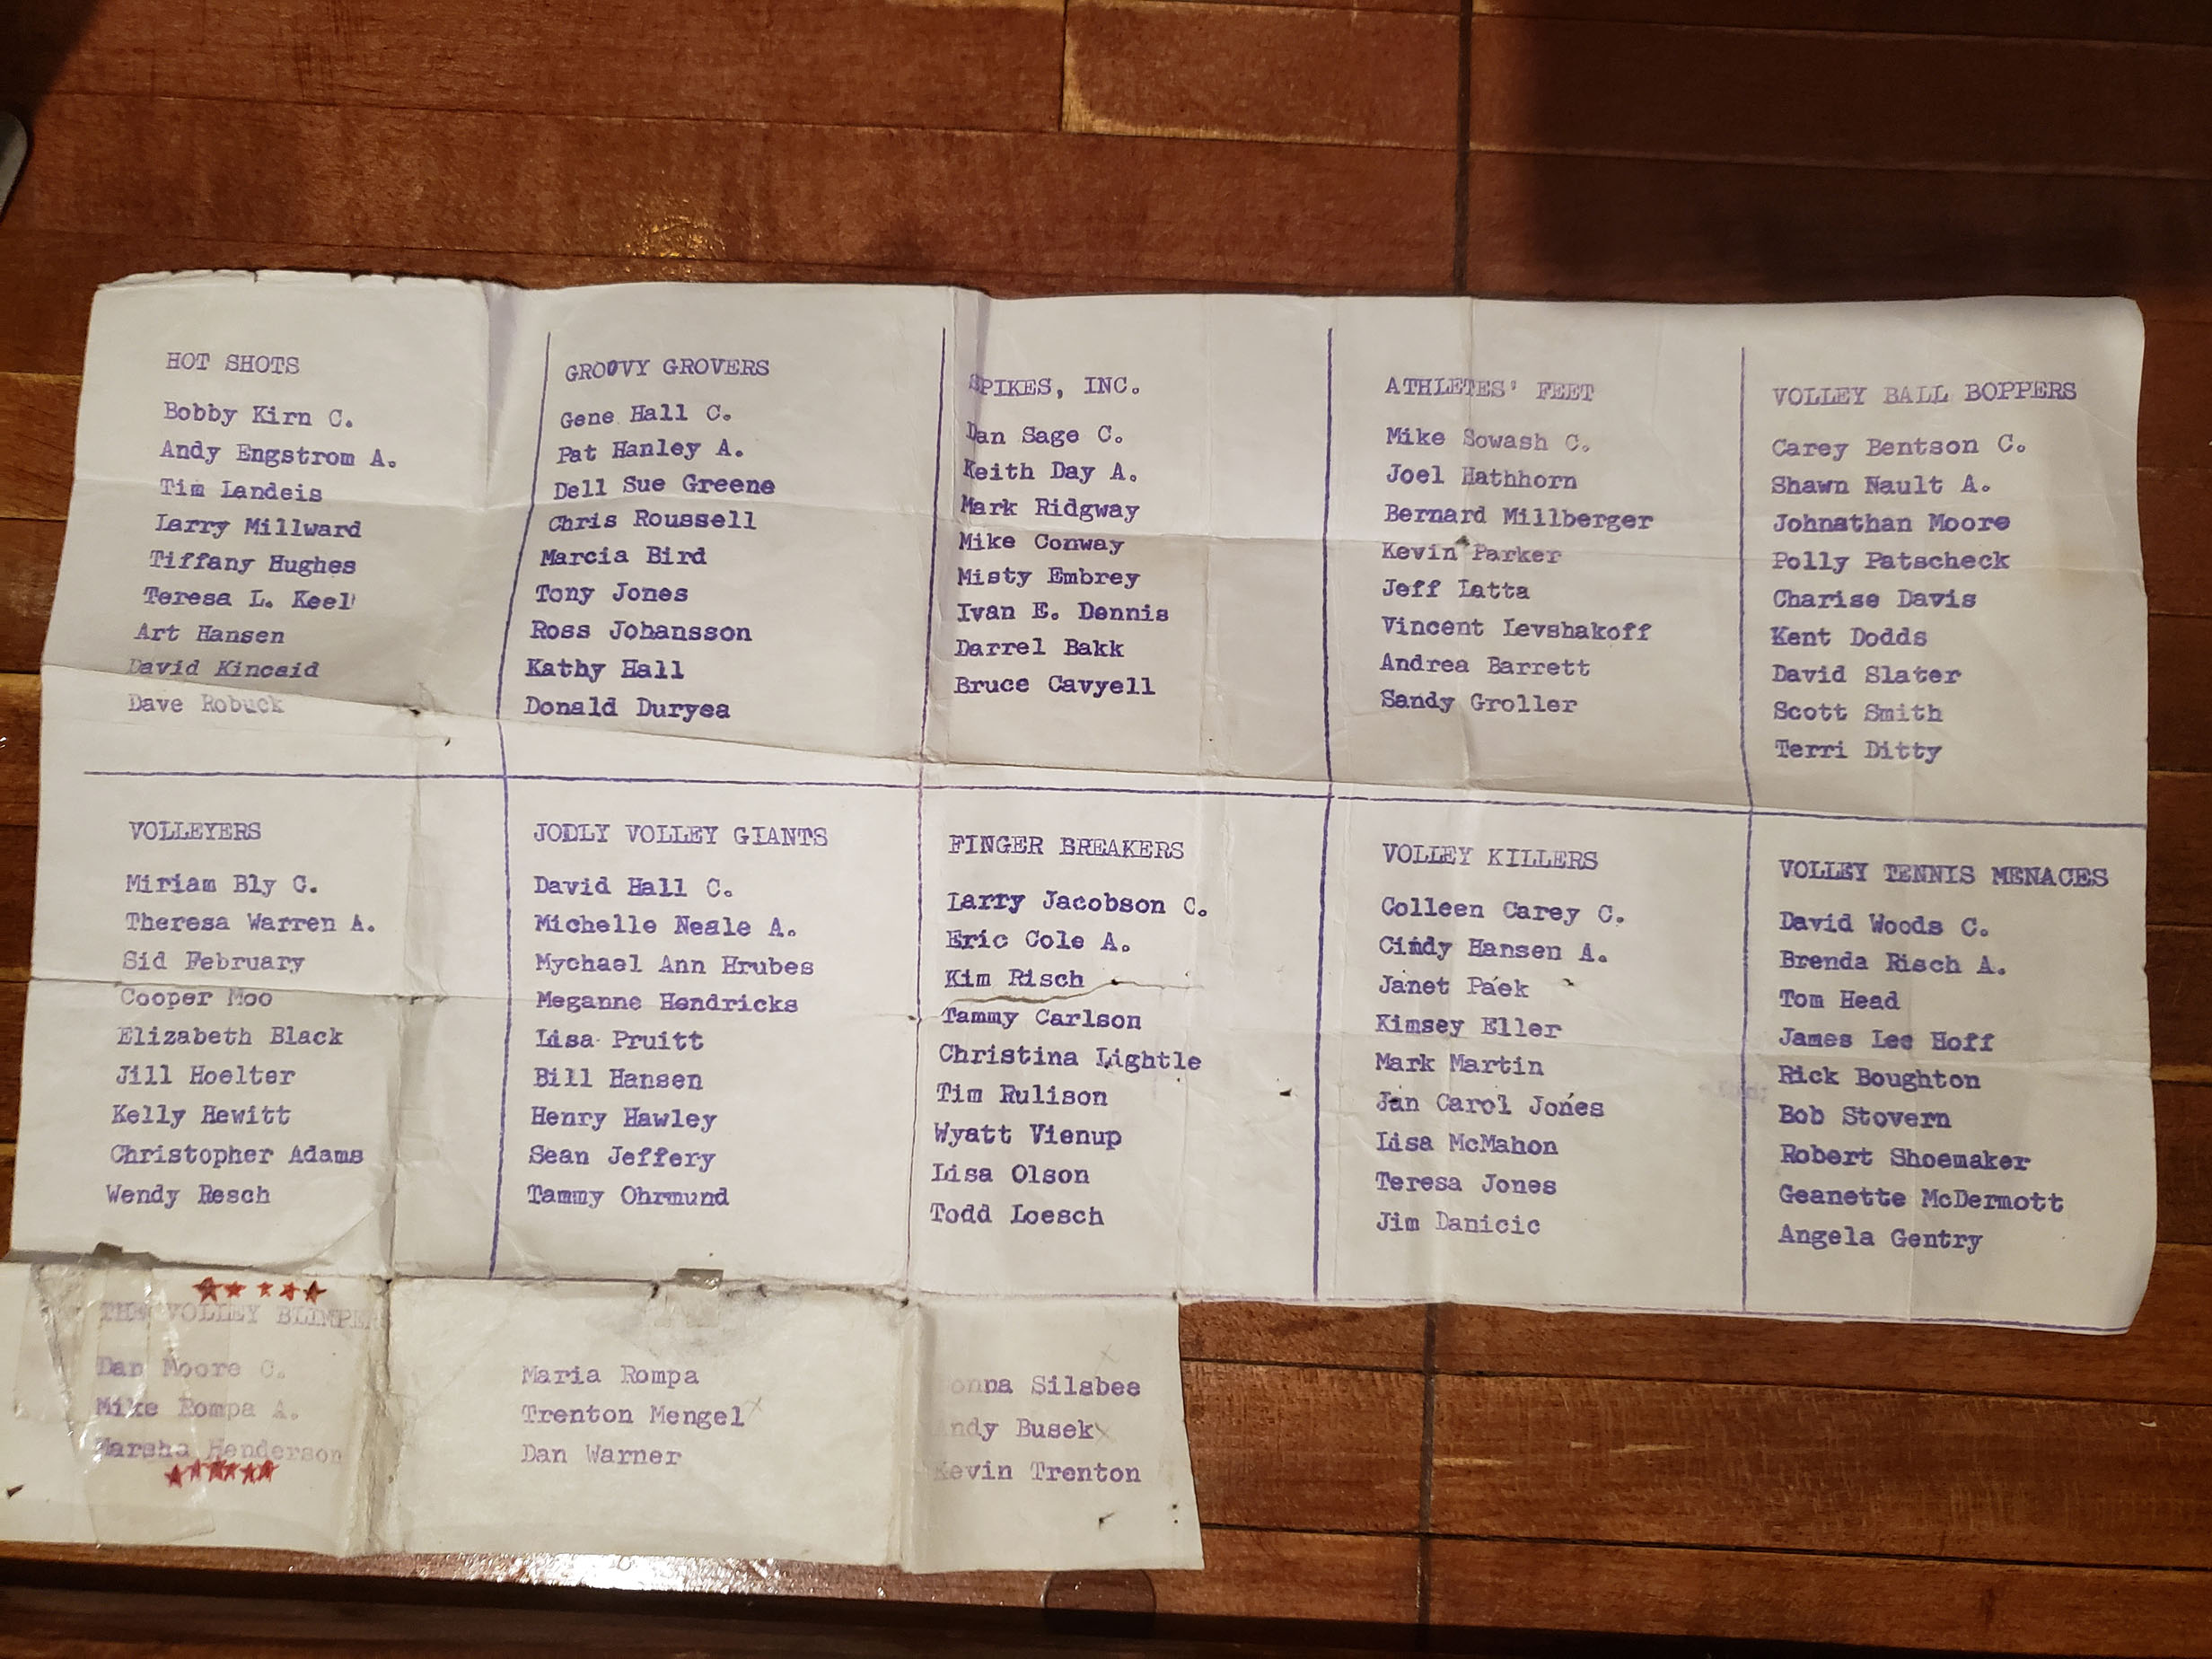 HOT SHOTS
Bobby Kirn C.
Andy Engstrom A.
Tim Landeis
Larry Millward
Tiffany Hughes
Teresa L. Keel
Art Hansen
David Kincaid
Dave Robuck
GROOVY GROVERS
Gene Hall C.
Pat Hanley A.
Dell Sue Greene
Chris Roussell
Marcia Bird
Tony Jones
Ross Johansson
Kathy Hall
Donald Duryea
SPIKES, INC.
Dan Sage C.
Keith Day A.
Mark Ridgway
Mike Conway
Misty Embrey
Ivan E. Dennis
Darrel Bakk
Bruce Cavyell
ATHLETES' FEET
Mike Sowash C.
Joel Hathhorn
Bernard Millberger
Kevin Parker
Jeff Latta
Vincent Levshakoff
Andrea Barrett
Sandy Groller
VOLLEY BALL BOPPERS
Carey Bentson C.
Shawn Nault A.
Johnathan Moore
Polly Patscheck
Charise Davis
Kent Dodds
David Slater
Scott Smith
Terri Ditty
VOLLEYERS
Miriam Bly C.
Theresa Warren A.
Sid February
Cooper Moo
Elizabeth Black
Jill Hoelter
Kelly Hewitt
Christopher Adams
Wendy Resch
JODLY VOLLEY GIANTS
David Hall C.
Michelle Neale A.
Mychael Ann Hrubes
Meganne Hendricks
Lisa Pruitt
Bill Hansen
Henry Hawley
Sean Jeffery
Tammy Ohrmund
FINGER BREAKERS
Larry Jacobson C.
Eric Cole A.
Kim Risch
Tammy Carlson
Christina Lightle
Tim Rulison
Wyatt Vienup
Lisa Olson
Todd Loesch
VOLLEY KILLERS
Colleen Carey C.
Cindy Hansen A.
Janet Paek
Kimsey Eller
Mark Martin
Jan Carol Jones
Lisa McMahon
Teresa Jones
Jim Danicic
VOLLEY TENNIS MENACES
David Woods C.
Brenda Risch A.
Tom Head
James Lee Hoff
Rick Boughton
Bob Stovern
Robert Shoemaker
Geanette McDermott
Angela Gentry
THE VOLLEY BLIMPERS
Dan Moore C.
Mike Rompa A.
Marsha Henderson
Maria Rompa
Trenton Mengel
Dan Warner
Silsbee
Busek
Kevin Trenton